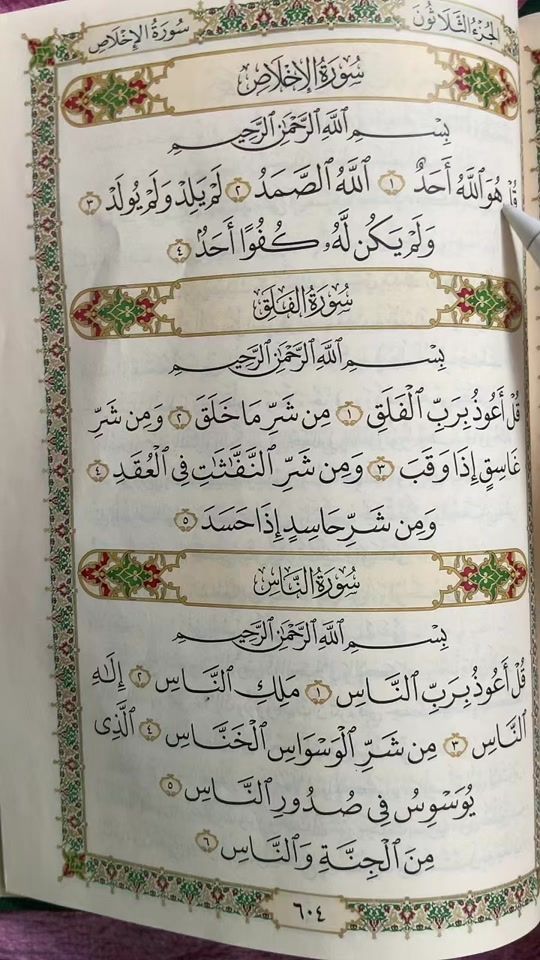 الجُزْءُ الثَّلَاثُونَ
سُورَةُ الإِخْلَاصِ
سُورَةُ الإِخْلَاصِ
بِسْمِ ٱللَّهِ ٱلرَّحْمَٰنِ ٱلرَّحِيمِ
قُلْ هُوَ ٱللَّهُ أَحَدٌ ١ ٱللَّهُ ٱلصَّمَدُ ٢ لَمْ يَلِدْ وَلَمْ يُولَدْ ٣
وَلَمْ يَكُن لَّهُۥ كُفُوًا أَحَدٌۢ ٤
سُورَةُ الفَلَقِ
بِسْمِ ٱللَّهِ ٱلرَّحْمَٰنِ ٱلرَّحِيمِ
قُلْ أَعُوذُ بِرَبِّ ٱلْفَلَقِ ١ مِن شَرِّ مَا خَلَقَ ٢ وَمِن شَرِّ
غَاسِقٍ إِذَا وَقَبَ ٣ وَمِن شَرِّ ٱلنَّفَّٰثَٰتِ فِى ٱلْعُقَدِ ٤
وَمِن شَرِّ حَاسِدٍ إِذَا حَسَدَ ٥
سُورَةُ النَّاسِ
بِسْمِ ٱللَّهِ ٱلرَّحْمَٰنِ ٱلرَّحِيمِ
قُلْ أَعُوذُ بِرَبِّ ٱلنَّاسِ ١ مَلِكِ ٱلنَّاسِ ٢ إِلَٰهِ
ٱلنَّاسِ ٣ مِن شَرِّ ٱلْوَسْوَاسِ ٱلْخَنَّاسِ ٤ ٱلَّذِى
يُوَسْوِسُ فِى صُدُورِ ٱلنَّاسِ ٥
مِنَ ٱلْجِنَّةِ وَٱلنَّاسِ ٦
٦٠٤